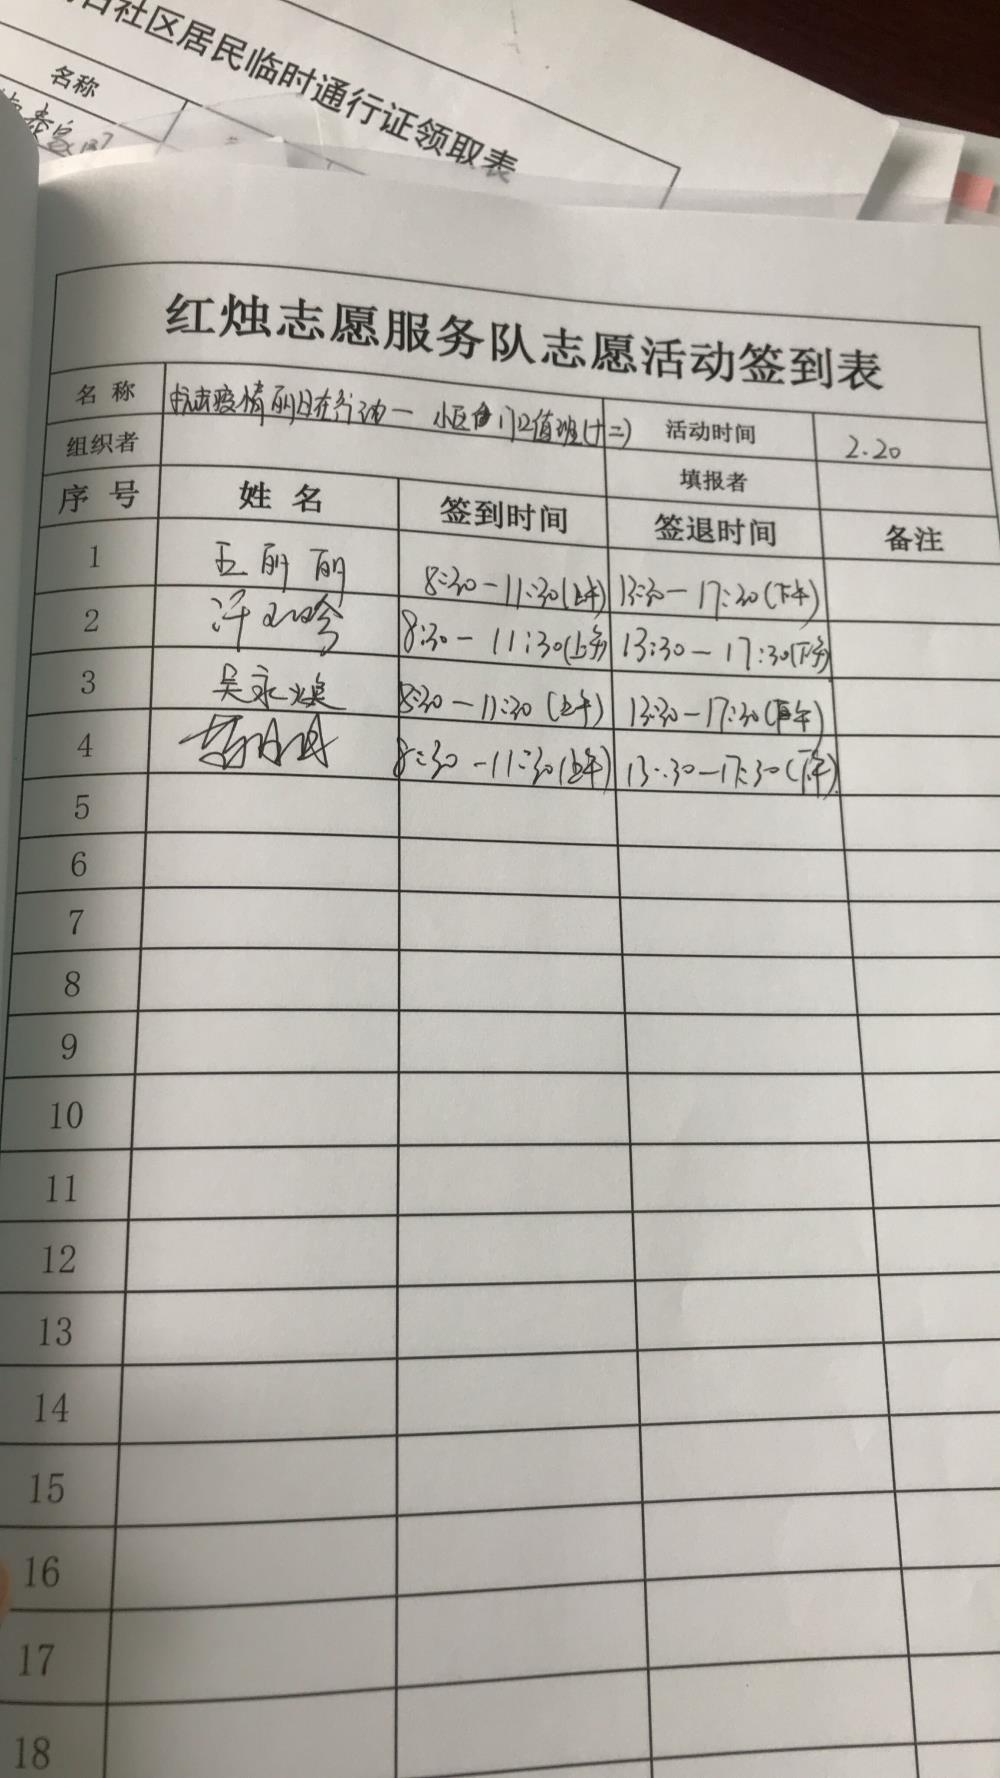 社区居民临时通行证领取表
名称
红烛志愿服务队志愿活动签到表
名称 抗击疫情 在行动一 小区门口值班(十二) 活动时间 2.20
组织者 填报者
序号 姓名 签到时间 签退时间 备注
1 王丽丽 8:30-11:30(上午) 13:30-17:30(下午)
2 8:30-11:30(上午) 13:30-17:30(下午)
3 吴永焕 8:30-11:30(上午) 13:30-17:30(下午)
4 8:30-11:30(上午) 13:30-17:30(下午)
5
6
7
8
9
10
11
12
13
14
15
16
17
18